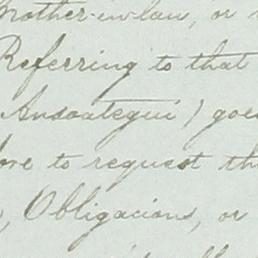 mother-in-law, or
Referring to that
Ansoategui) goes
to request th
, Obligacion, or